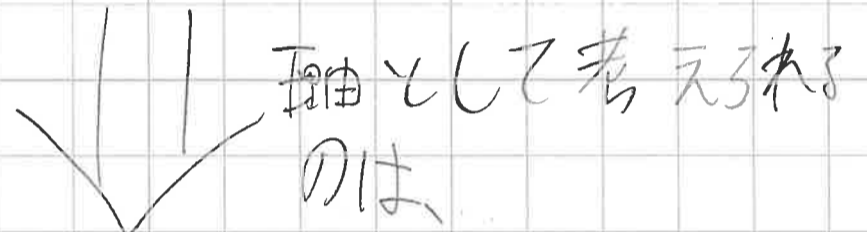 理由として考えられる
のは、